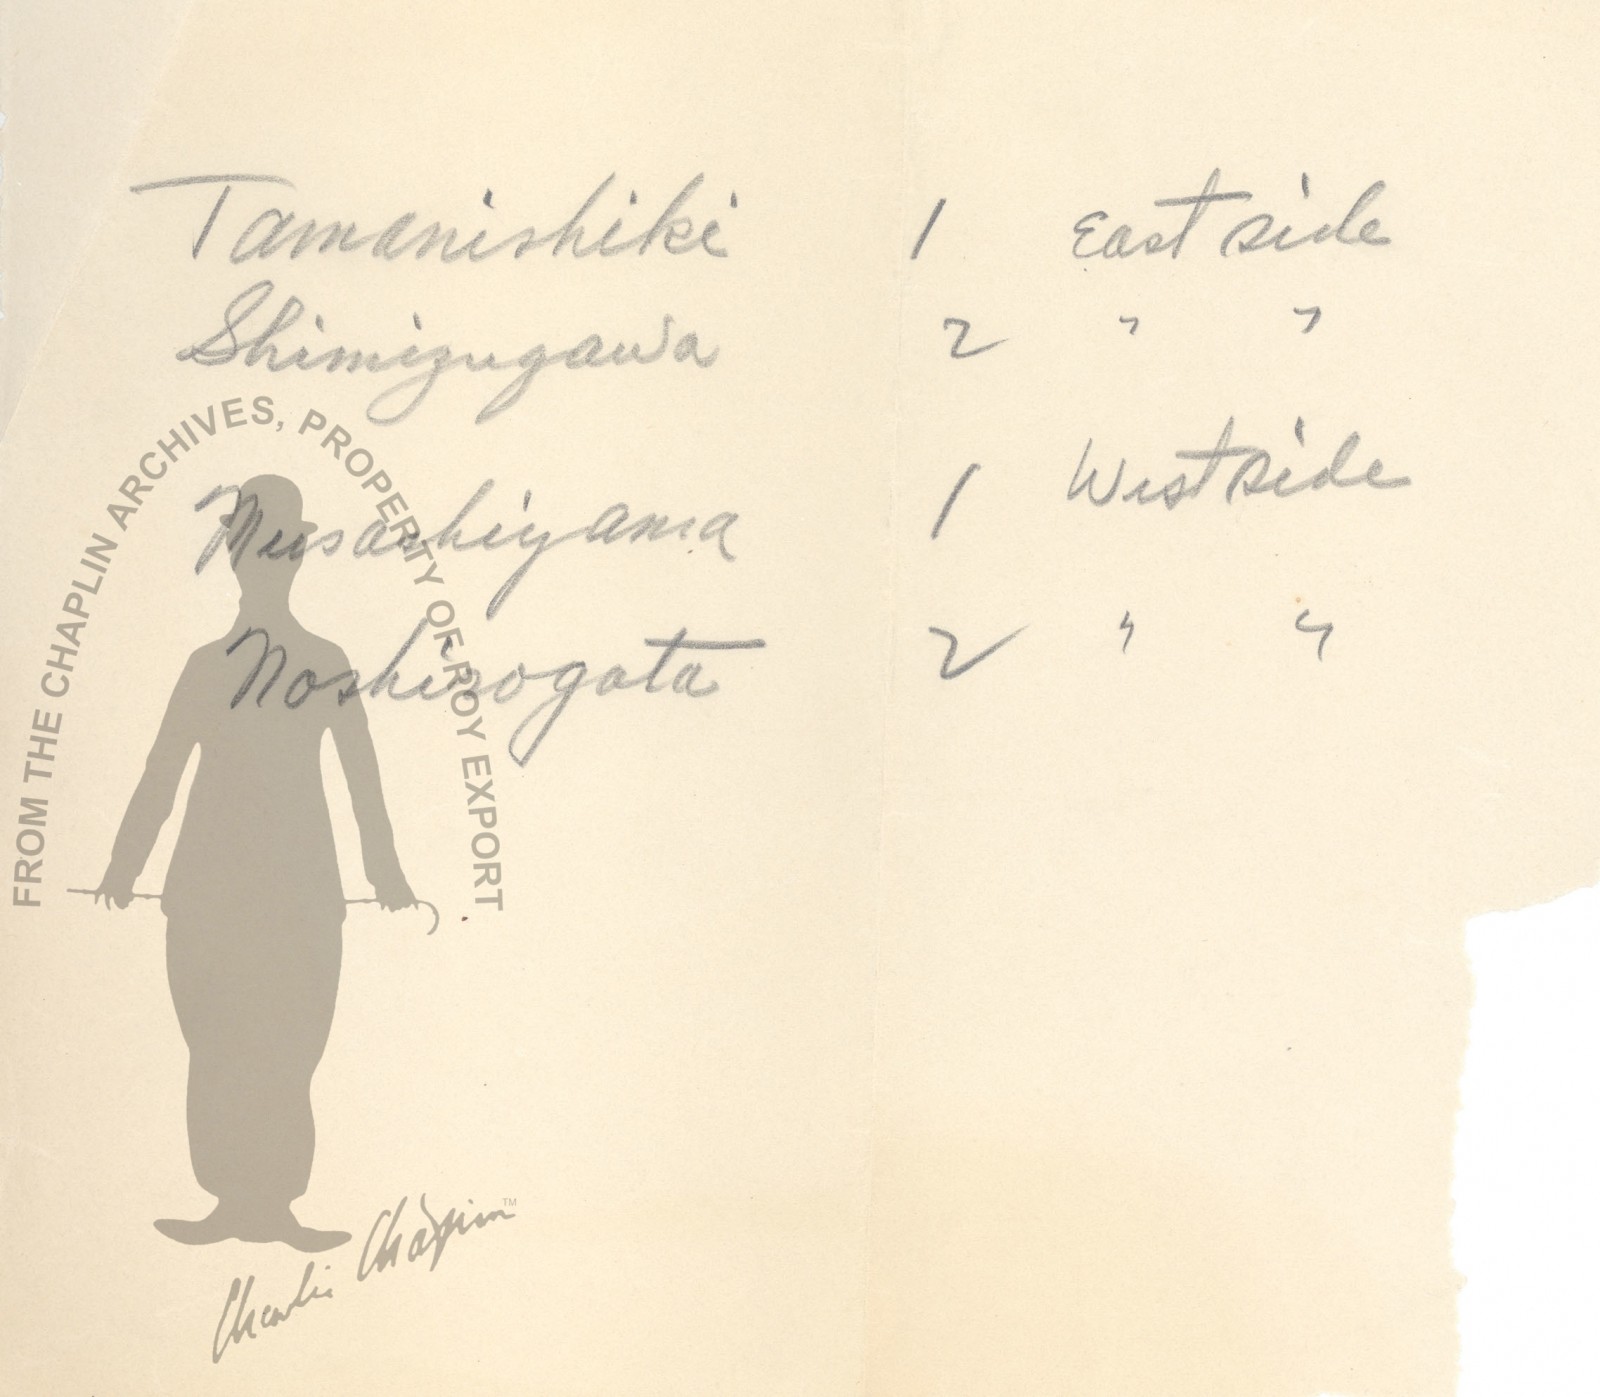 Tamanishiki 1 East side
Shimizugawa 2 " "
Musashiyama 1 West side
Noshirogata 2 " "
FROM THE CHAPLIN ARCHIVES, PROPERTY OF ROY EXPORT
Charlie Chaplin™